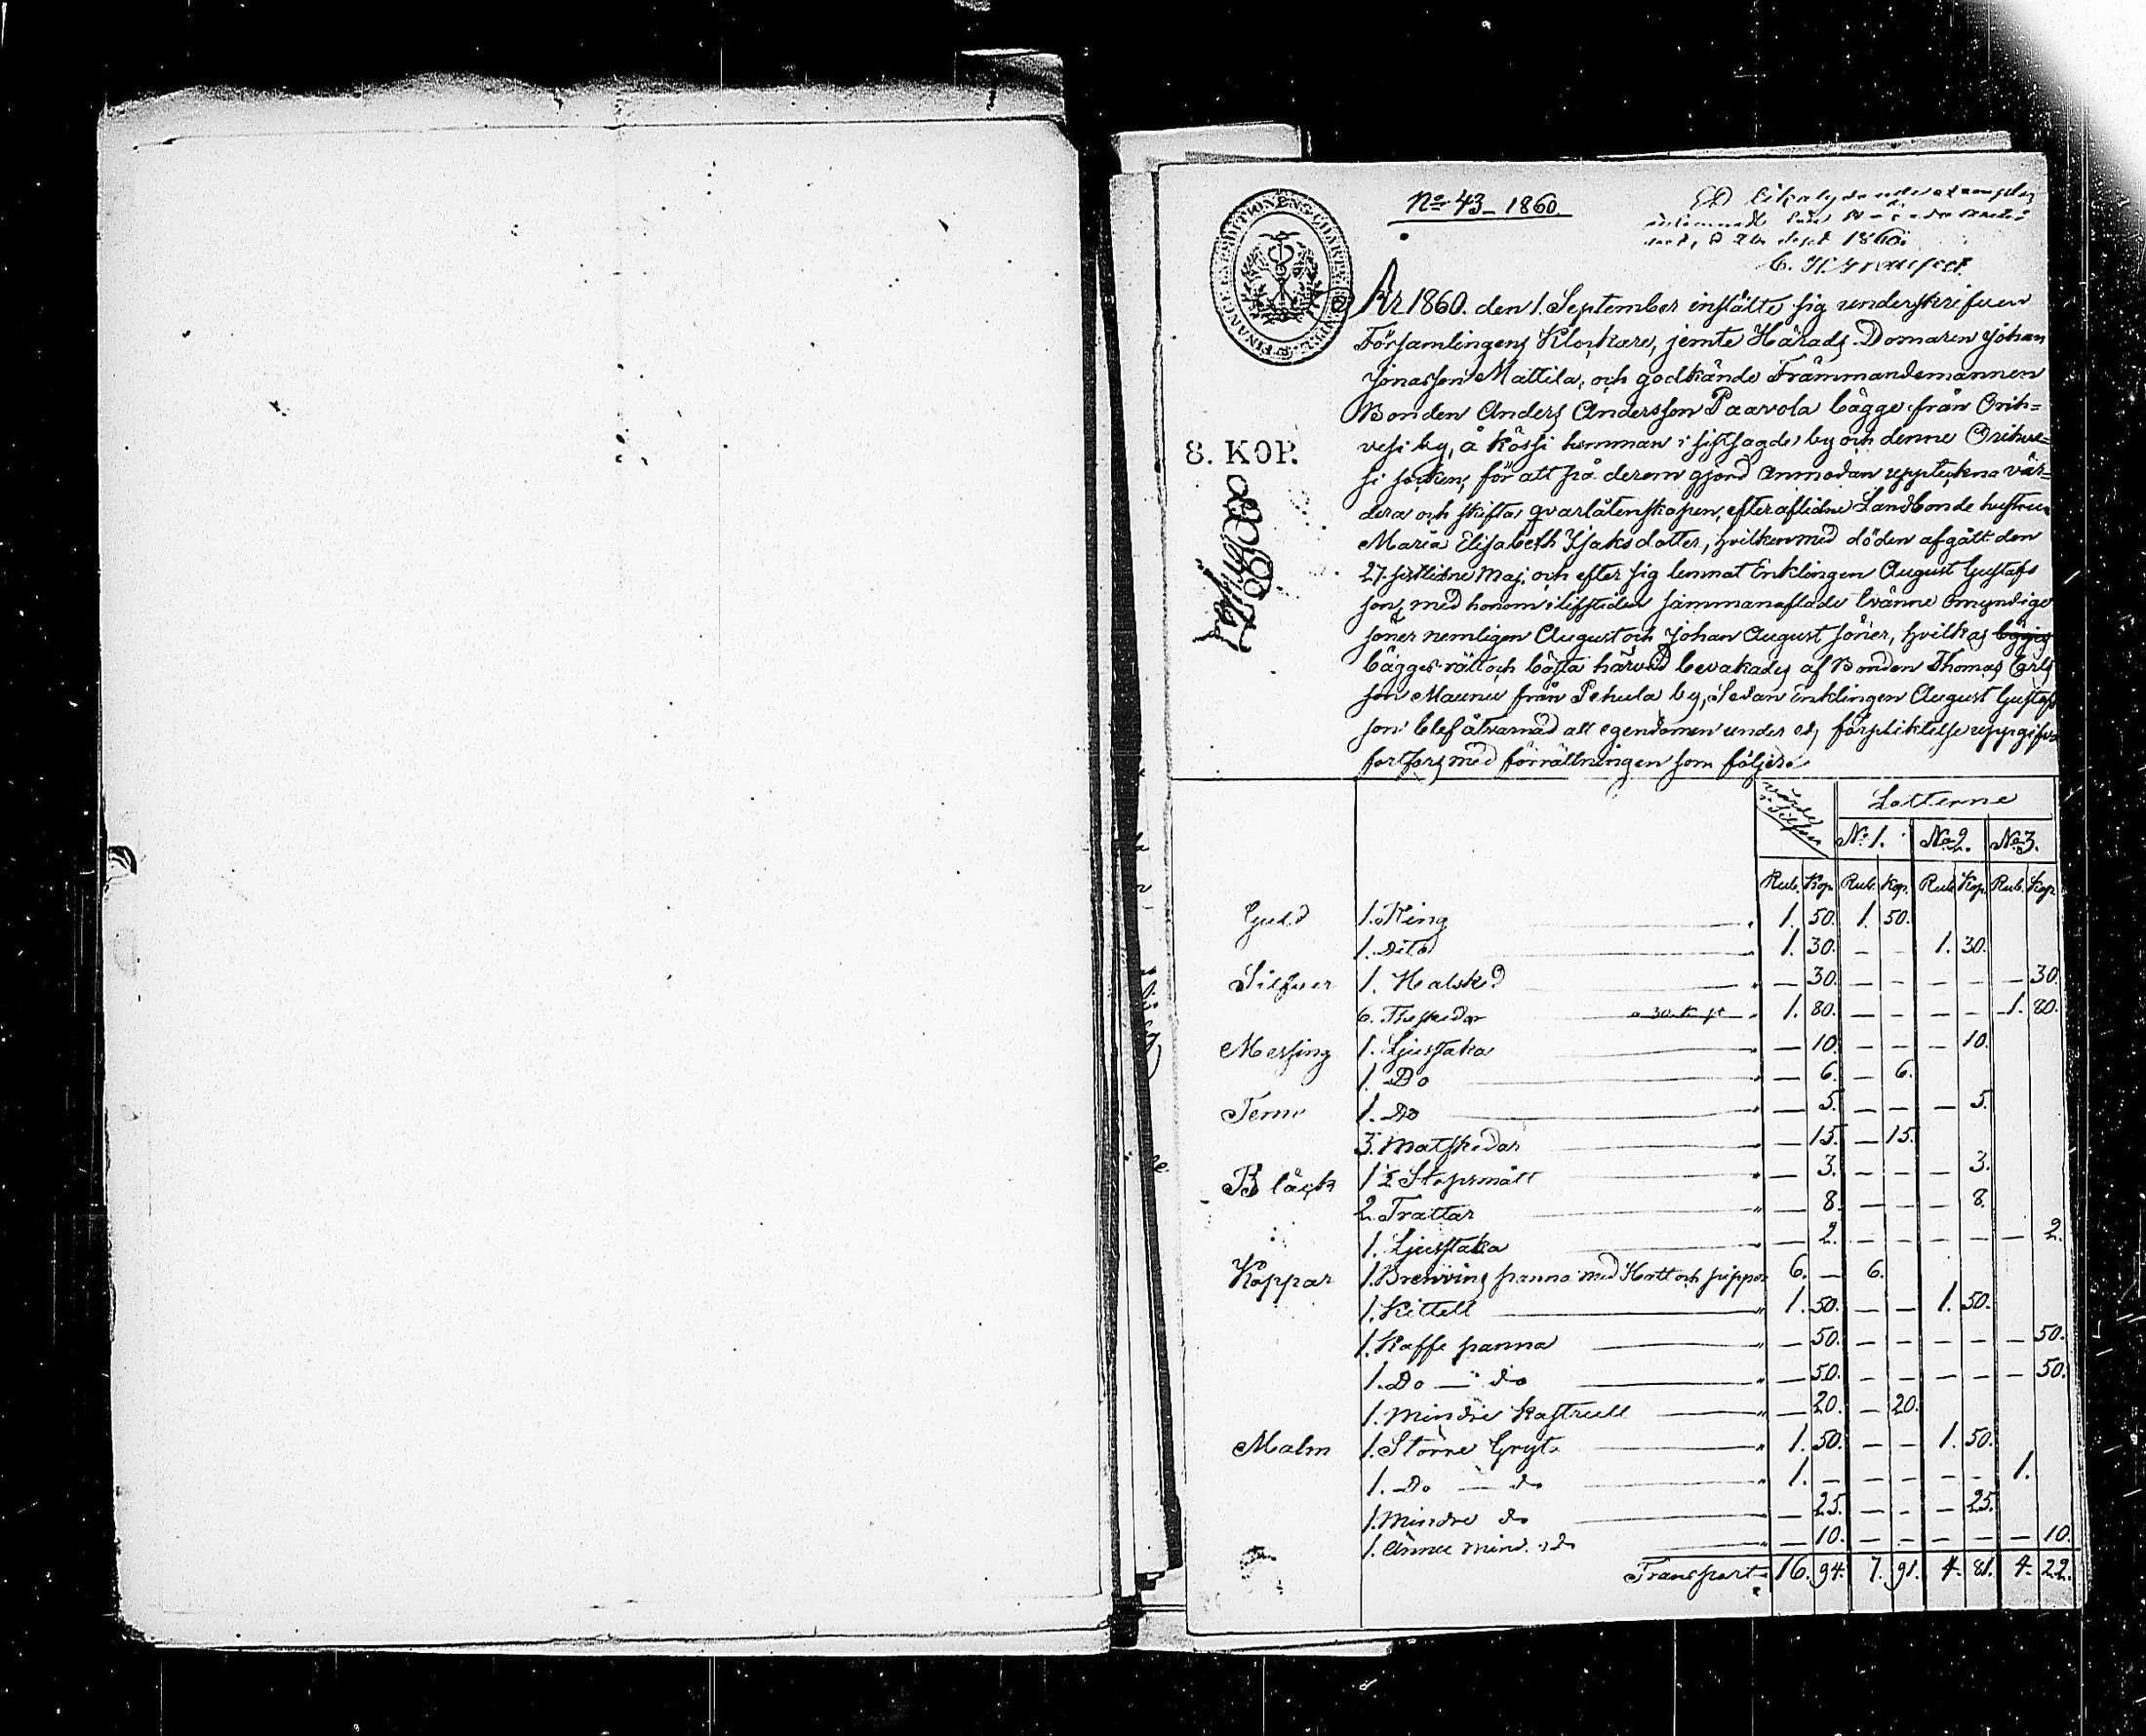 No 43_ 1860.
Ett lika lydande exemplar
inlemnadt
1860.
8. KOP.
År 1860. den 1. September instälte sig underskrifven
Församlingens Klockare, jemte Härads Domaren Johan
Jonasson Mattila, och godkände Främmandemännen
Bonden Anders Andersson Paavola bägge från Orih=
vesi by, å Kössi hemman i sistsagde by och denne Orihve=
si socken, för att på derom gjord anmodan uppteckna vär=
dera och skifta qvarlåtenskapen, efter aflidne Landbonde hustrun
Maria Elisabeth Isaksdotter, hvilken med döden afgått den
27. sistlidne Maj, och efter sig lemnat Enklingen August Gustafs
son, med honom i lifstiden sammanaflade tvänne omyndige
söner nemligen August och Johan August söner, hvilkas bägges
bägges rätt och bästa härvid bevakades af Bonden Thomas Carls
son Maunu från Pehula by, Sedan Enklingen August Gustafs
son blef åtvarnad att egendomen under eds förpliktelse uppgifva
fortfors med förrättningen som följer.
värde i Silfver Lotterne
No 1. No 2. No 3.
Rub. Kop. Rub. Kop. Rub. Kop. Rub. Kop.
Guld 1. Ring 1. 50. 1. 50.
1. Dito 1. 30. - - 1. 30.
Silfver 1. Halsked — 30. - - - - - 30.
6. Theskedar a 30. K. st 1. 80. - - - - 1. 80.
Messing 1. Ljusstaka — 10. - - - 10.
1. Do — 6. - 6.
Tenn 1. Do — 5. - - - 5.
3. Matskedar — 15. - 15.
Bläck 1 ½ Stopsmått — 3. - - - 3.
2. Trattar — 8. - - - 8.
1. Ljusstaka — 2. - - - - - 2.
Koppar 1. Brenvins panna med Hatt och pippor 6. — 6.
1. Kittell 1. 50. - - 1. 50.
1. Kaffe panna — 50. - - - - - 50.
1. Do — do — 50. - - - - - 50.
1. Mindre Kastrull — 20. - 20.
Malm 1. Större Gryta 1. 50. - - 1. 50.
1. Do — do 1. - - - - - 1.
1. Mindre do — 25. - - - 25.
1. Ännu mind. do — 10. - - - - - 10.
Transport 16. 94. 7. 91. 4. 81. 4. 22.